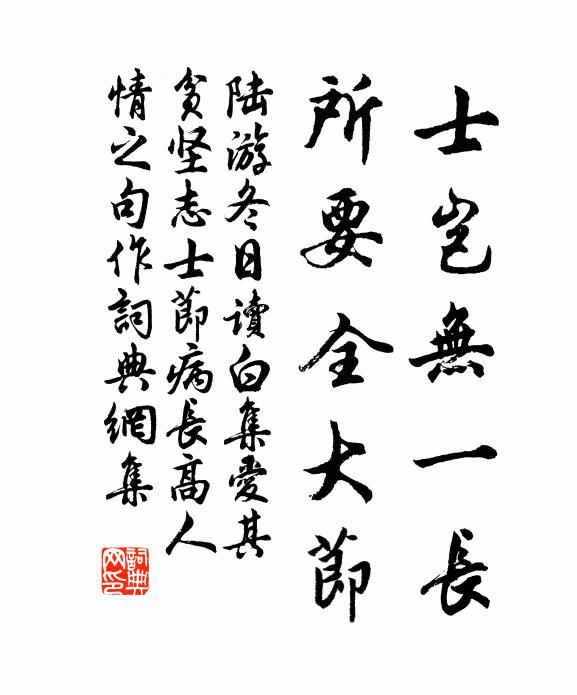 士豈無一長
所要全大節
陆游冬日读白集愛其
貧坚志士節病長高人
情之句作詞典網集
詞典网印